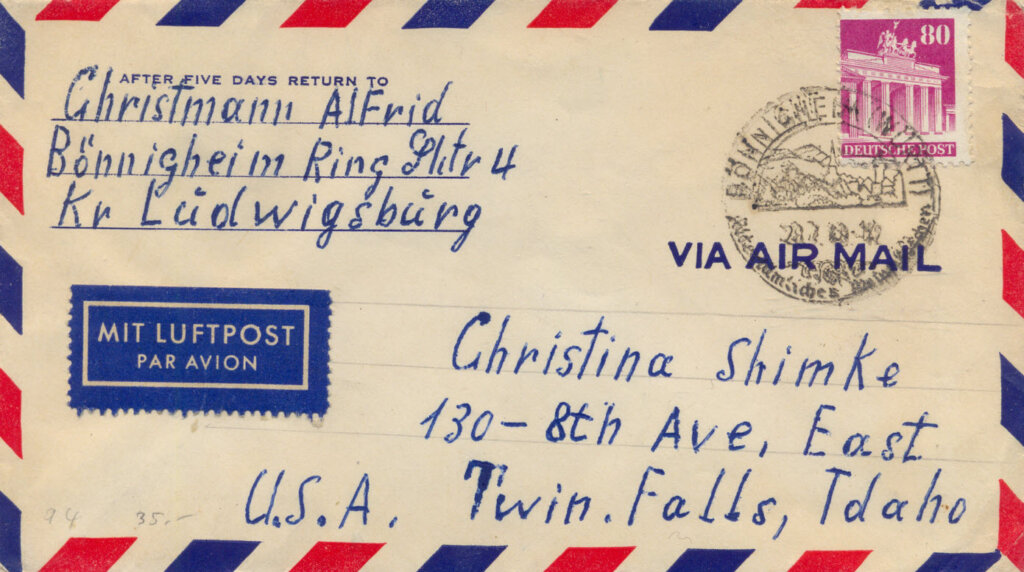 AFTER FIVE DAYS RETURN TO
Christmann Alfrid
Bönnigheim Ring Shtr 4
Kr Lüdwigsbürg
80
DEUTSCHE POST
BÖNNIGHEIM (WÜRTT)
VIA AIR MAIL
MIT LUFTPOST
PAR AVION
Christina Shimke
130-8th Ave, East
U.S.A. Twin. Falls, Idaho
94 35.-